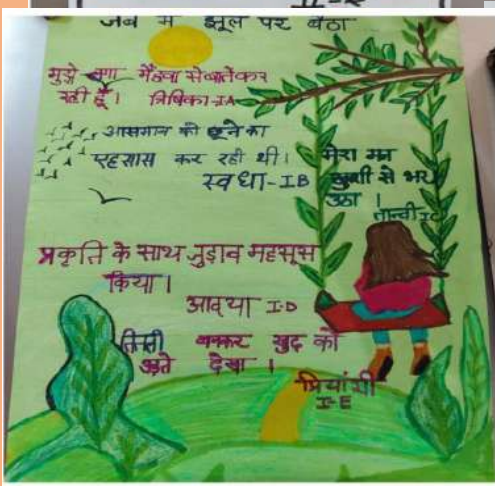 जब म झूल पर बठा
मुझे लगा मैं हवा से बातें कर
रही हूँ। त्रिषिका-IA
आसमान को छूने का
एहसास कर रही थी।
स्वधा-IB
मेरा मन
खुशी से भर
उठा।
तान्वी IC
प्रकृति के साथ जुड़ाव महसूस
किया।
आद्या I-D
बनकर खुद को
देखा।
प्रियांसी
I-E